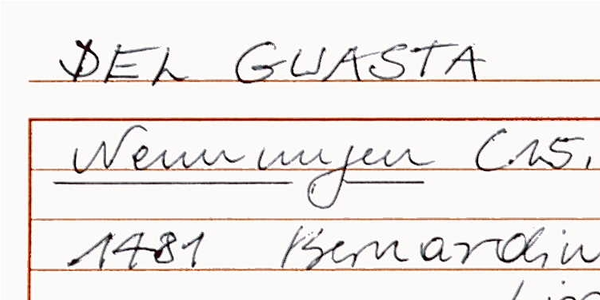 DEL GUASTA
Nennungen (15.
1481 Bernardin